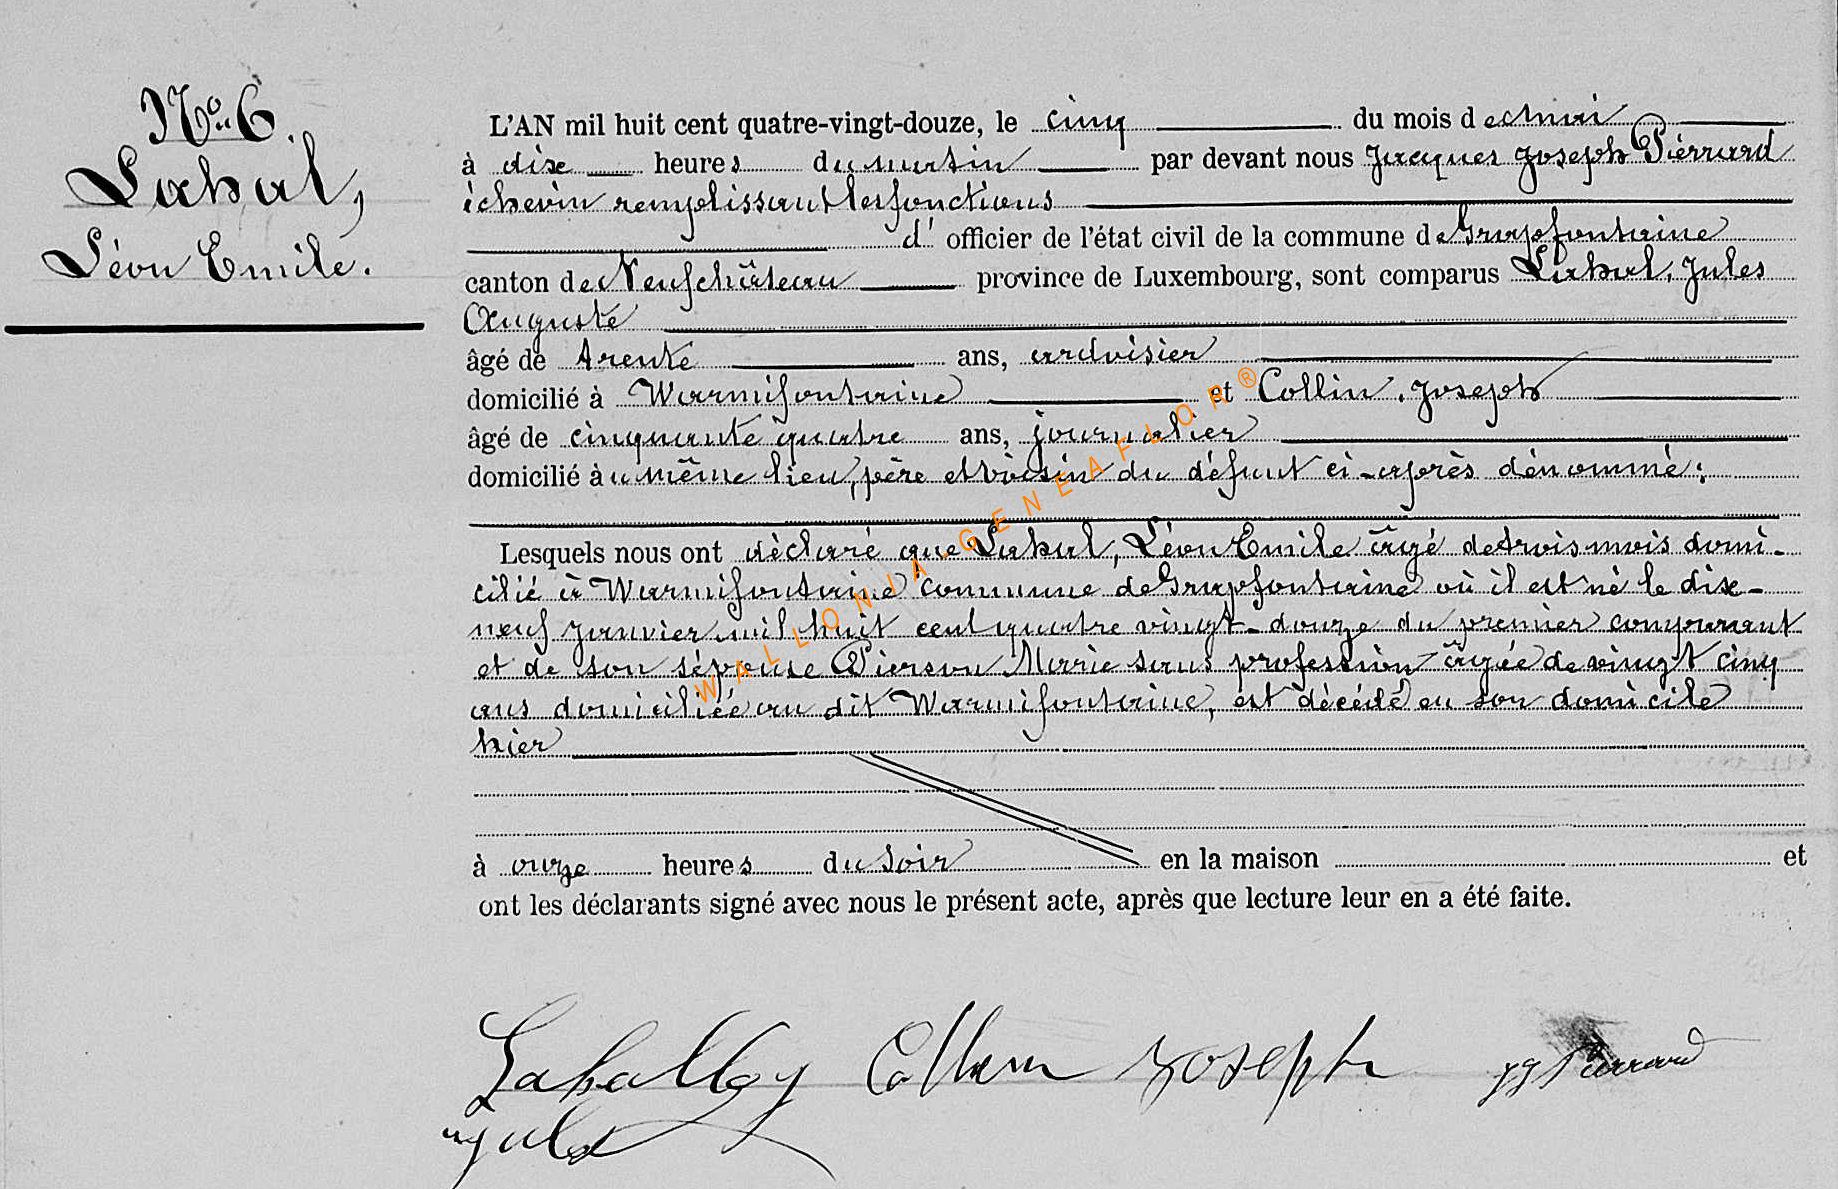 N° 6.
Lahal,
Léon Emile.
L'AN mil huit cent quatre-vingt-douze, le cinq du mois de mai
à dix heures du matin par devant nous Jacques Joseph Pierrard
échevin remplissant les fonctions
d' officier de l'état civil de la commune de Grapfontaine
canton de Neufchâteau province de Luxembourg, sont comparus Lahal, Jules
Auguste
âgé de trente ans, ardoisier
domicilié à Warmifontaine et Collin, Joseph
âgé de cinquante quatre ans, journalier
domicilié au même lieu, père et voisin du défunt ci-après dénommé:
Lesquels nous ont déclaré que Lahal, Léon Emile âgé de trois mois domi-
cilié à Warmifontaine commune de Grapfontaine où il est né le dix-
neuf janvier mil huit cent quatre vingt-douze du premier comparant
et de son sépouse Pierson Marie sans profession âgée de vingt cinq
ans domiciliée au dit Warmifontaine, est décédé en son domicile
hier
à onze heures du soir en la maison et
ont les déclarants signé avec nous le présent acte, après que lecture leur en a été faite.
Collin Joseph JJ Pierrard
WALLONIA-GENEAFLOR®